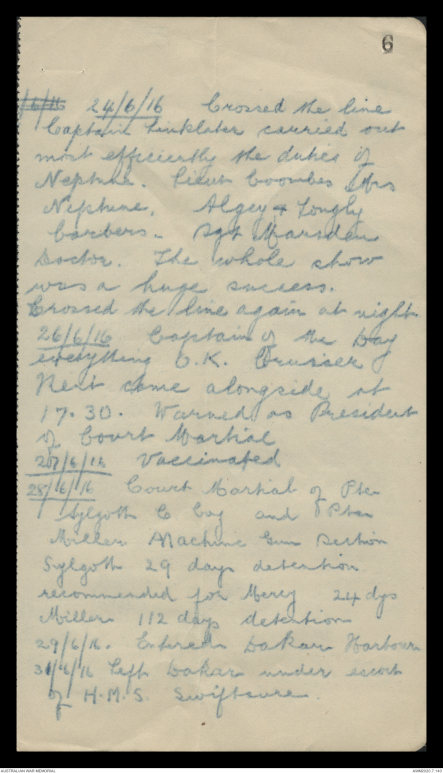 6
24/6/16 Crossed the line
Captain Linklater carried out
most efficiently the duties of
Neptune. Lieut Coombes Mrs
Neptune. Algey & Longly
barbers - Sgt Marsden
Doctor. The whole show
was a huge success.
Crossed the line again at night
26/6/16 Captain of the Day
everything O.K. Cruiser
Kent came alongside at
17.30. Warned as President
of Court Martial
27/6/16 Vaccinated
28/6/16 Court Martial of Pte
Sylgoth C Coy and Pte
Miller Machine Gun Section
Sylgoth 29 days detention
recommended for Mercy 24 dys
Miller 112 days detention
29/6/16. Entered Dakar Harbour
/6/16 Left Dakar under escort
of H.M.S. Swiftsure.
AUSTRALIAN WAR MEMORIAL